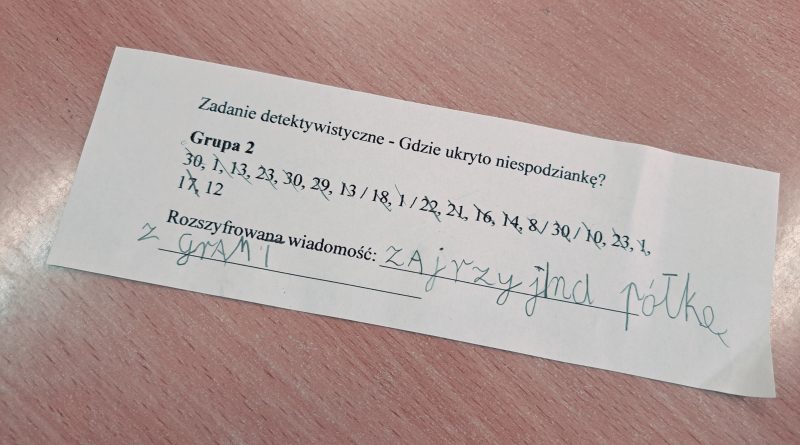 Zadanie detektywistyczne - Gdzie ukryto niespodziankę?
Grupa 2
30, 1, 13, 23, 30, 29, 13 / 18, 1 / 22, 21, 16, 14, 8 / 30 / 10, 23, 1,
17, 12
Rozszyfrowana wiadomość: zAjrzyj na półkę
z grAMi